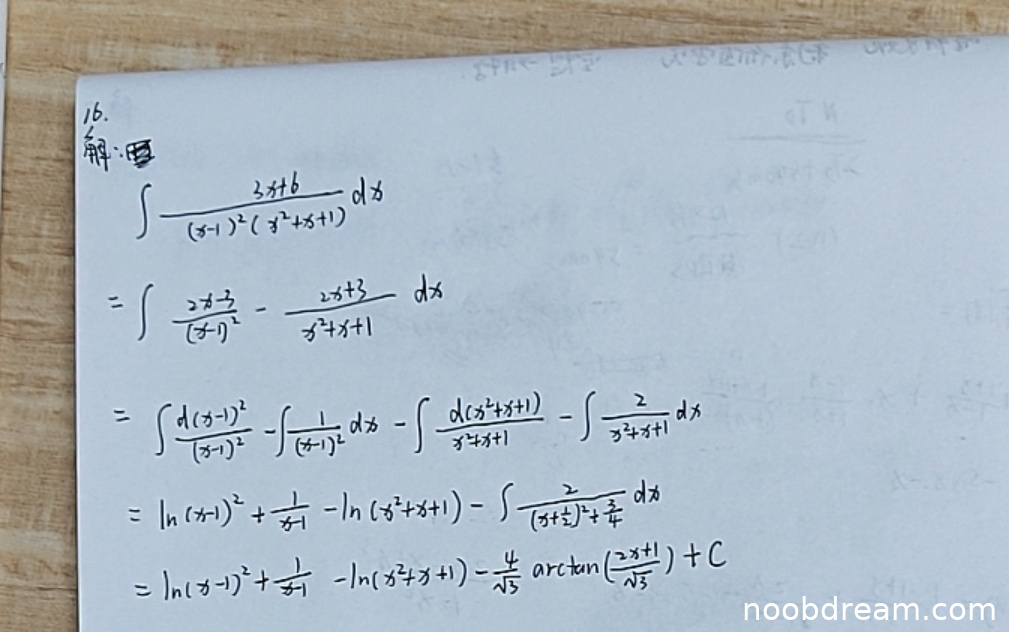 16.
解:
∫ (3x+6)/((x-1)²(x²+x+1)) dx
= ∫ (2x-3)/(x-1)² - (2x+3)/(x²+x+1) dx
= ∫ d(x-1)²/(x-1)² - ∫ 1/(x-1)² dx - ∫ d(x²+x+1)/(x²+x+1) - ∫ 2/(x²+x+1) dx
= ln(x-1)² + 1/(x-1) - ln(x²+x+1) - ∫ 2/((x+1/2)²+3/4) dx
= ln(x-1)² + 1/(x-1) - ln(x²+x+1) - 4/√3 arctan((2x+1)/√3) + C
noobdream.com